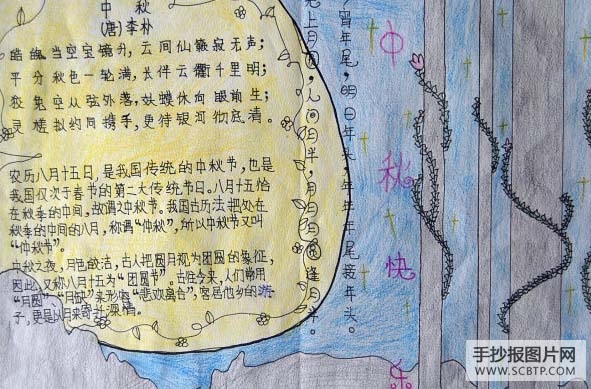 中秋
(唐)李朴
皓魄当空宝镜升,云间仙籁寂无声;
平分秋色一轮满,长伴云衢千里明;
狡兔空从弦外落,妖蟆休向眼前生;
灵槎拟约同携手,更待银河彻底清。
农历八月十五日,是我国传统的中秋节,也是
我国仅次于春节的第二大传统节日。八月十五恰
在秋季的中间,故谓之中秋节。我国古历法把处在
秋季的中间的八月,称谓“仲秋”,所以中秋节又叫
“仲秋节”。
中秋之夜,月色皎洁,古人把圆月视为团圆的象征,
因此,又称八月十五为“团圆节”。古往今来,人们常用
“月圆”、“月缺”来形容“悲欢离合”,客居他乡的游
子,更是以月来寄托深情。
上月圆,人间月半,月月月圆逢月半。
宵年尾,明日年头,年年年尾接年头。
中秋快乐
手抄报图片网
WWW.SCBTP.COM